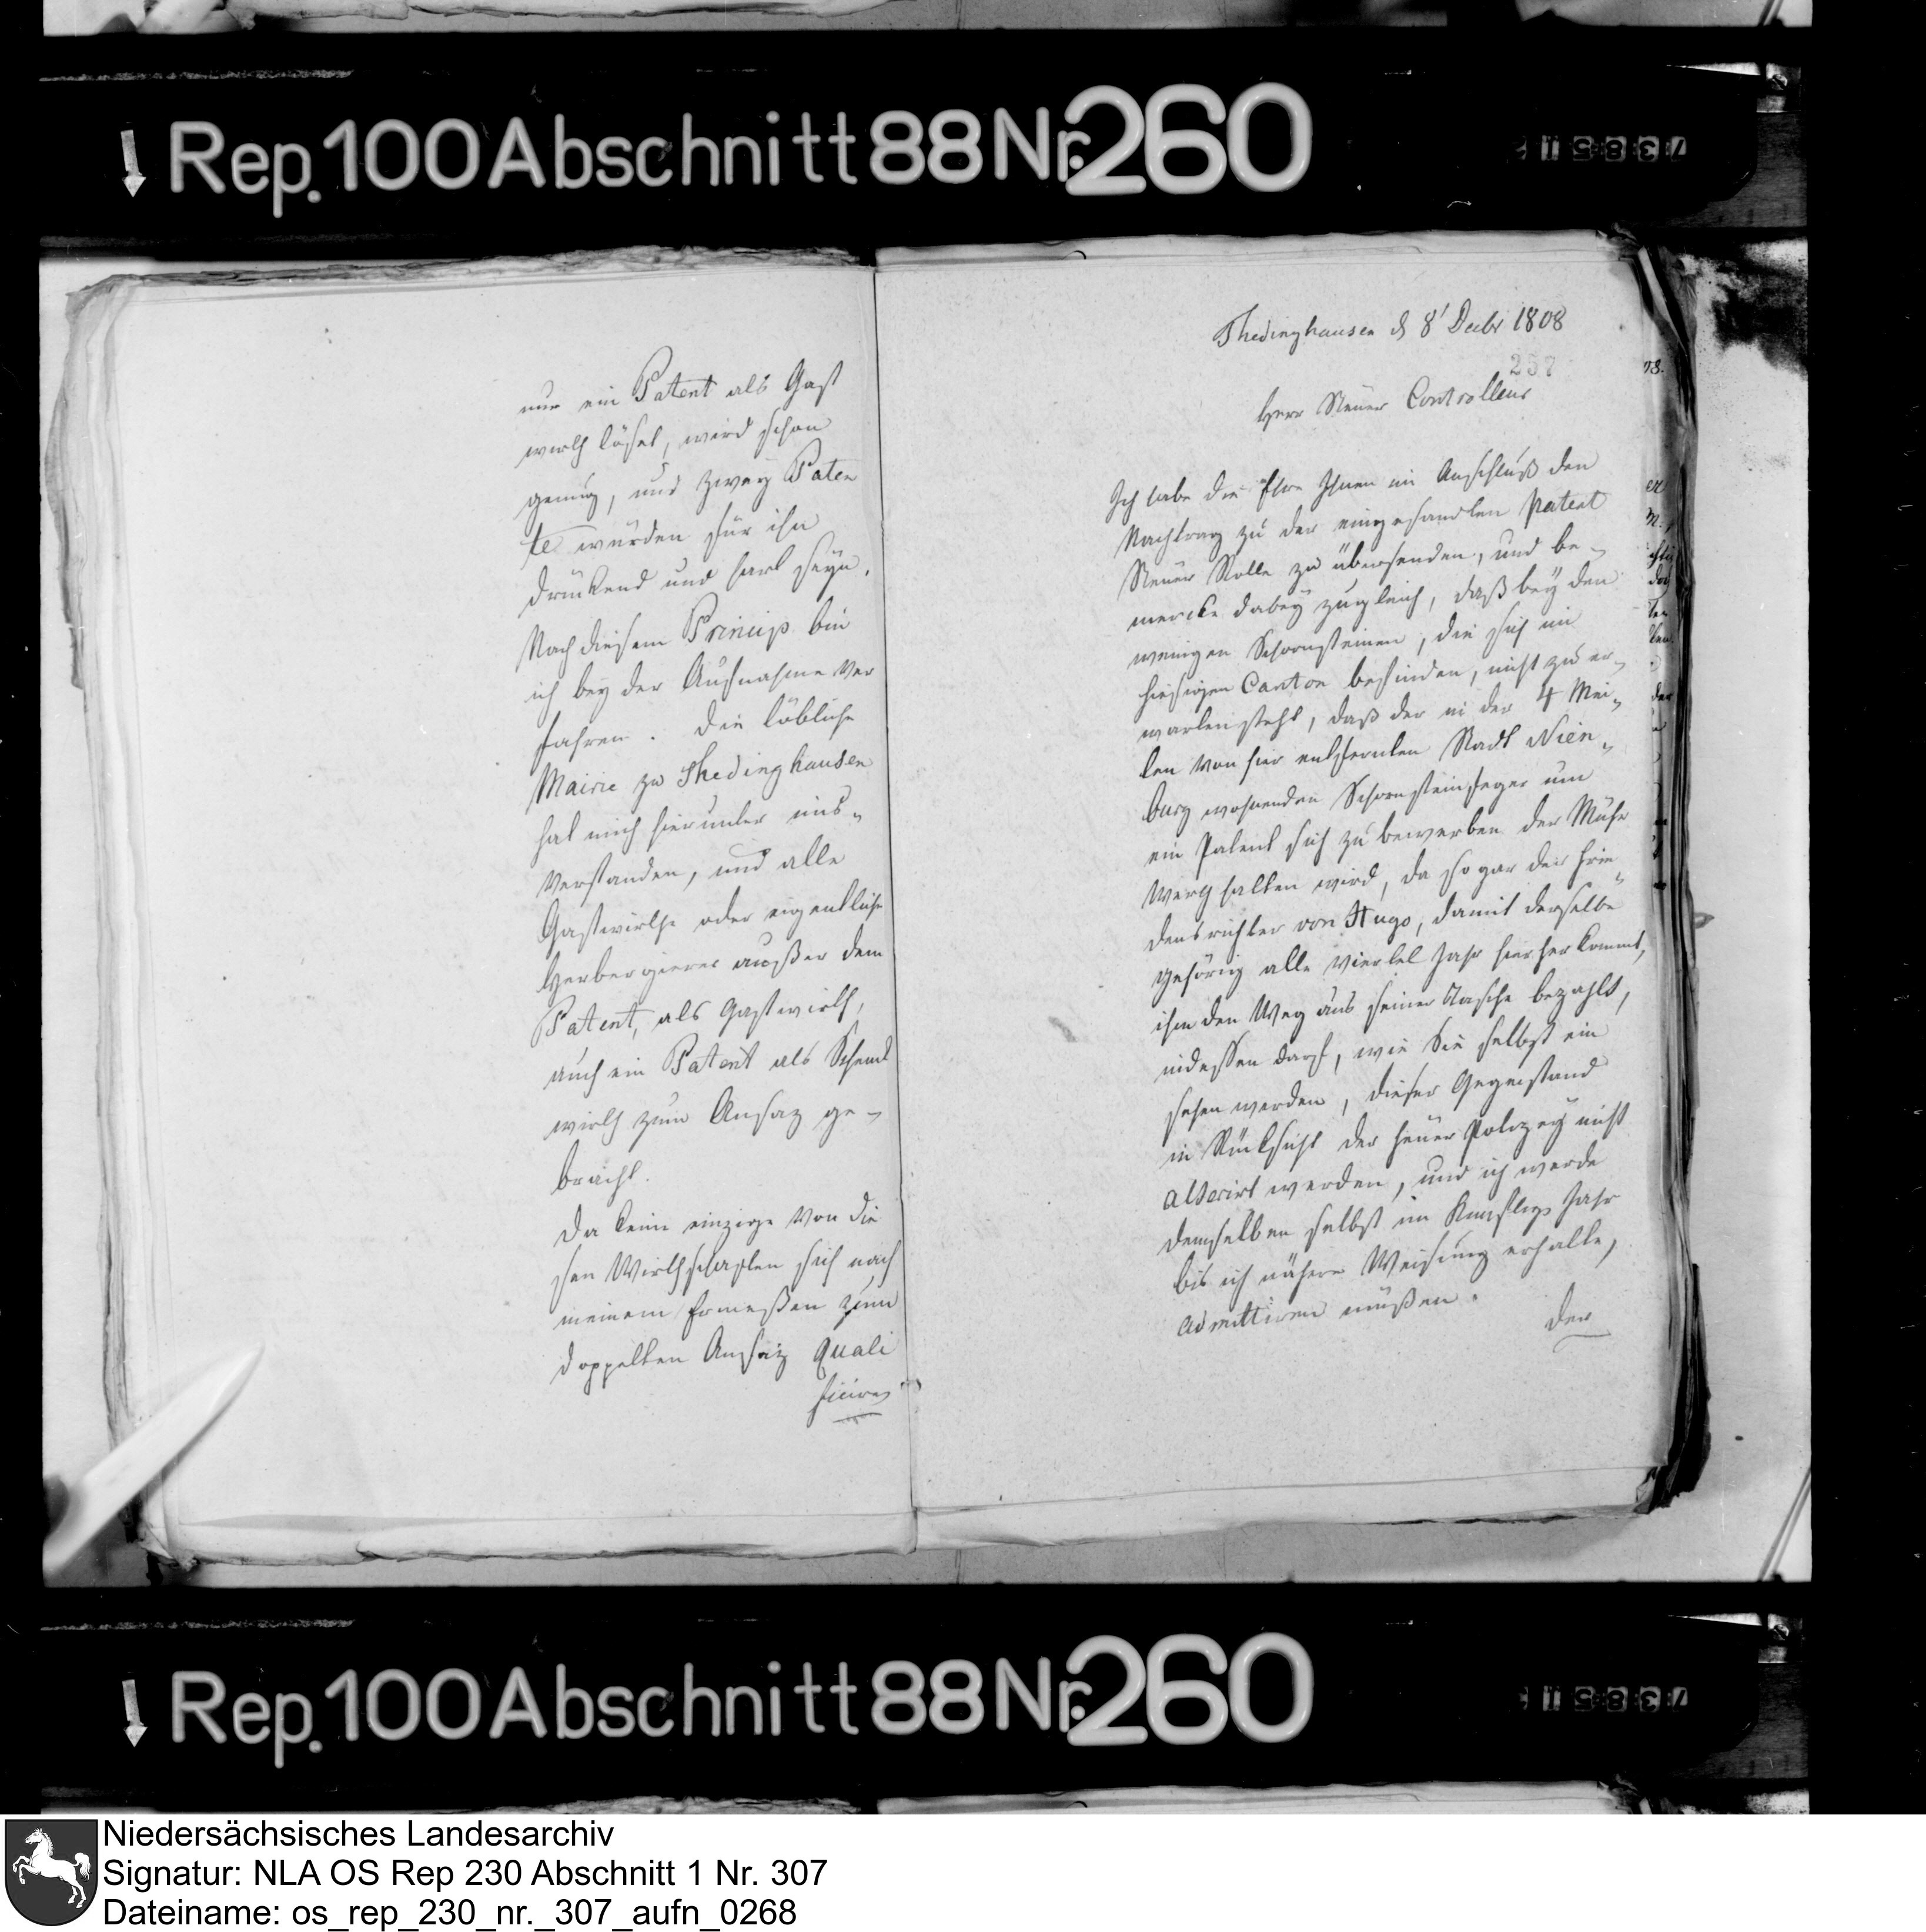 Rep. 100 Abschnitt 88 Nr. 260
nur ein Patent als Gast
wirth löset, wird schon
genug, und zwey Paten
te würden für ihn
drückend und hart seyn.
Nach diesem Princip bin
ich bey der Aufnahme ver
fahren. Die löbliche
Mairie zu Thedinghausen
hat mich hierunter mis-
verstanden, und alle
Gastwirthe oder eigentliche
Herbergierer außer dem
Patent, als Gastwirth,
auch ein Patent als Schenk
wirth zum Ansaz ge-
bracht.
Da keine einzige von die
sen Wirthschaften sich nach
meinem Ermeßen zum
doppelten Ansaz quali
ficiret
Thedinghausen d 8' Decbr 1808
257
Herr Steuer Controlleur
Ich habe die Ehre Ihnen im Anschluß den
Nachtrag zu der eingesandten Patent
Steuer Rolle zu übersenden, und be-
mercke dabey zugleich, daß bey den
wenigen Schornsteinen, die sich im
hiesigen Canton befinden, nicht zu er-
warten steht, daß der in der 4 Mei-
len von hier entfernten Stadt Nien-
burg wohnenden Schornsteinfeger um
ein Patent sich zu bewerben der Mühe
werth halten wird, da sogar der Frie-
densrichter von Hugo, damit derselbe
gehörig alle viertel Jahr hierher kommt,
ihm den Weg aus seiner Tasche bezahlt,
indessen darf, wie Sie selbst ein
sehen werden, dieser Gegenstand
in Rücksicht der Feuer Polizey nicht
alterirt werden, und ich werde
demselben selbst im Künftigen Jahr
bis ich nähere Weisung erhalte,
admittiren müßen.
Der
Rep. 100 Abschnitt 88 Nr. 260
Niedersächsisches Landesarchiv
Signatur: NLA OS Rep 230 Abschnitt 1 Nr. 307
Dateiname: os_rep_230_nr._307_aufn_0268